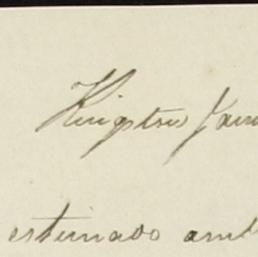 Kingston Jam
estimado ami